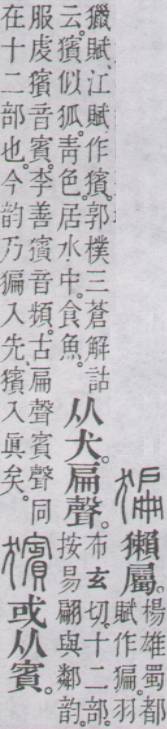 猵 獺屬。楊雄蜀都
賦作猵。羽
獵賦、江賦作獱。郭樸三蒼解詁
云。獱似狐。青色。居水中。食魚。
从犬。扁聲。
布玄切。十二部。
按易翩與鄰韵。
服虔獱音賓。李善獱音頻。古扁聲賓聲同
在十二部也。今韵乃猵入先獱入眞矣。
獱 或从賓。